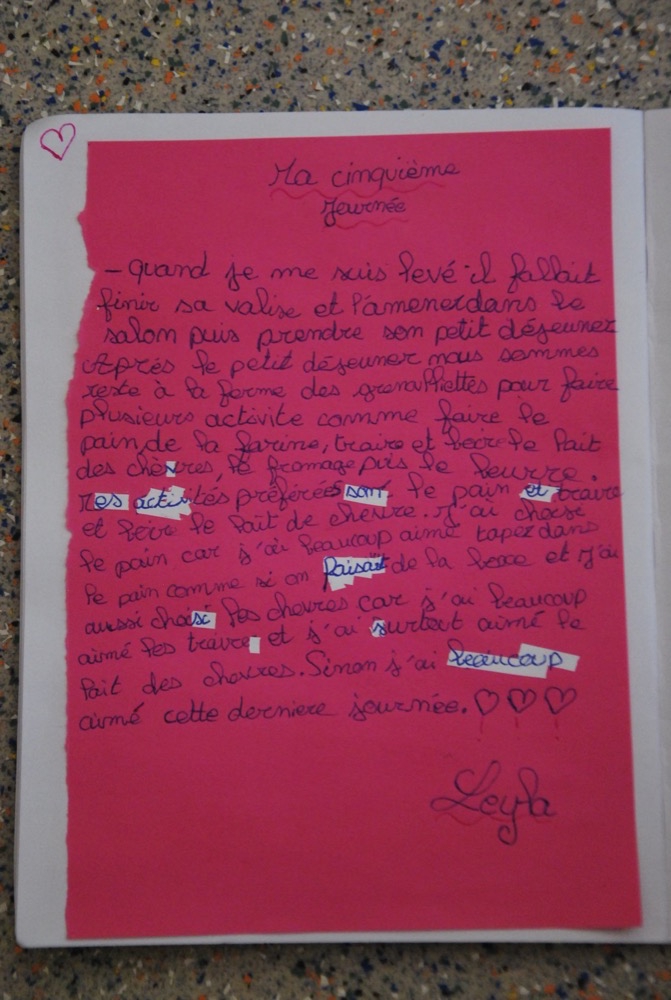 Ma cinquième
Journée
- quand je me suis levé il fallait
finir sa valise et l'amener dans le
salon puis prendre son petit déjeuner
Après le petit déjeuner nous sommes
reste à la ferme des grenouillettes pour faire
plusieurs activite comme faire le
pain, de la farine, traire et boire le lait
des chèvres, le fromage pis le beurre.
Mes activités préférées sont le pain et traire
et boire le lait de chevre. J'ai choisi
le pain car j'ai beaucoup aimé taper dans
le pain comme si on faisait de la boxe et j'ai
aussi choisi les chevres car j'ai beaucoup
aimé les traire et j'ai surtout aimé le
lait des chevres. Sinon j'ai beaucoup
aimé cette derniere journée.
Leyla